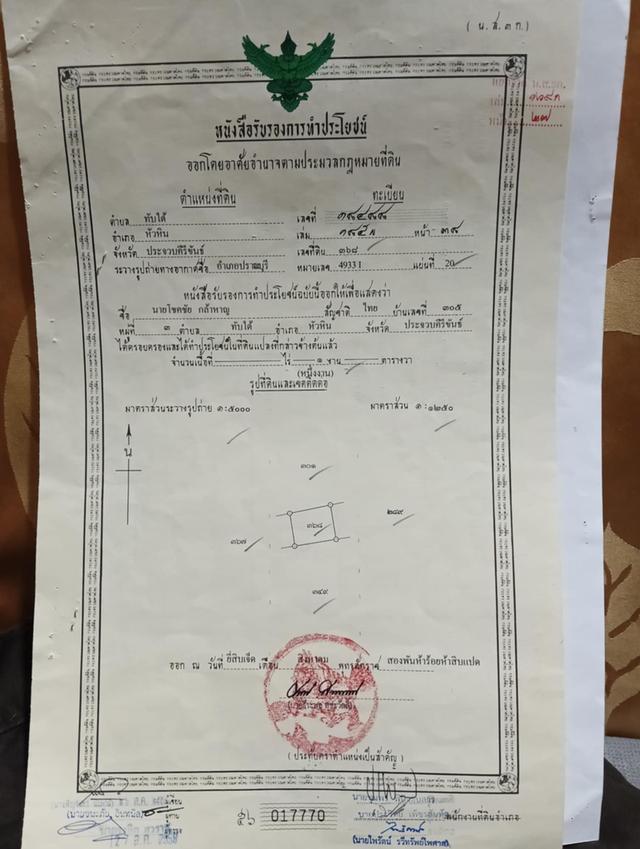 ( น.ส.๓ ก.)
หนังสือรับรองการทำประโยชน์
ออกโดยอาศัยอำนาจตามประมวลกฎหมายที่ดิน
ตำแหน่งที่ดิน ทะเบียน
ตำบล ทับใต้ เลขที่
อำเภอ หัวหิน เล่ม หน้า ๓๙
จังหวัด ประจวบคีรีขันธ์ เลขที่ดิน ๓๖๘
ระวางรูปถ่ายทางอากาศชื่อ อำเภอปราณบุรี หมายเลข 4933 I แผ่นที่ 20
หนังสือรับรองการทำประโยชน์ฉบับนี้ออกให้เพื่อแสดงว่า
ชื่อ นายโชคชัย กล้าหาญ สัญชาติ ไทย บ้านเลขที่ ๓๐๕
หมู่ที่ ๓ ตำบล ทับใต้ อำเภอ หัวหิน จังหวัด ประจวบคีรีขันธ์
ได้ครอบครองและได้ทำประโยชน์ในที่ดินแปลงที่กล่าวข้างต้นแล้ว
จำนวนเนื้อที่ ไร่ ๑ งาน ตารางวา
(หนึ่งงาน)
รูปที่ดินและเขตติดต่อ
มาตราส่วนระวางรูปถ่าย ๑:๕๐๐๐ มาตราส่วน ๑:๑๒๕๐
น
๓๐๑
๓๖๘ ๒๘๙
๓๖๗
๓๔๙
ออก ณ วันที่ ยี่สิบเจ็ด เดือน สิงหาคม พุทธศักราช สองพันห้าร้อยห้าสิบแปด
( ประทับตราตำแหน่งเป็นสำคัญ )
017770
พนักงานที่ดินอำเภอ
(นายไพรัตน์ รวีทรัพย์ไพศาล)